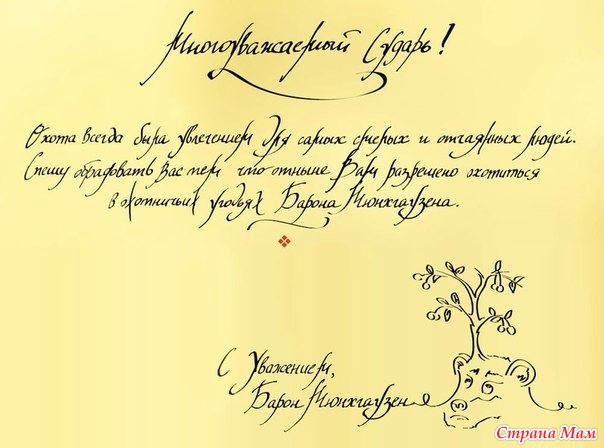 Многоуважаемый Сударь!
Охота всегда была увлечением для самых смелых и отчаянных людей.
Спешу обрадовать Вас тем что отныне Вам разрешено охотиться
в охотничьих угодьях Барона Мюнхгаузена.
С Уважением,
Барон Мюнхгаузен
Страна Мам